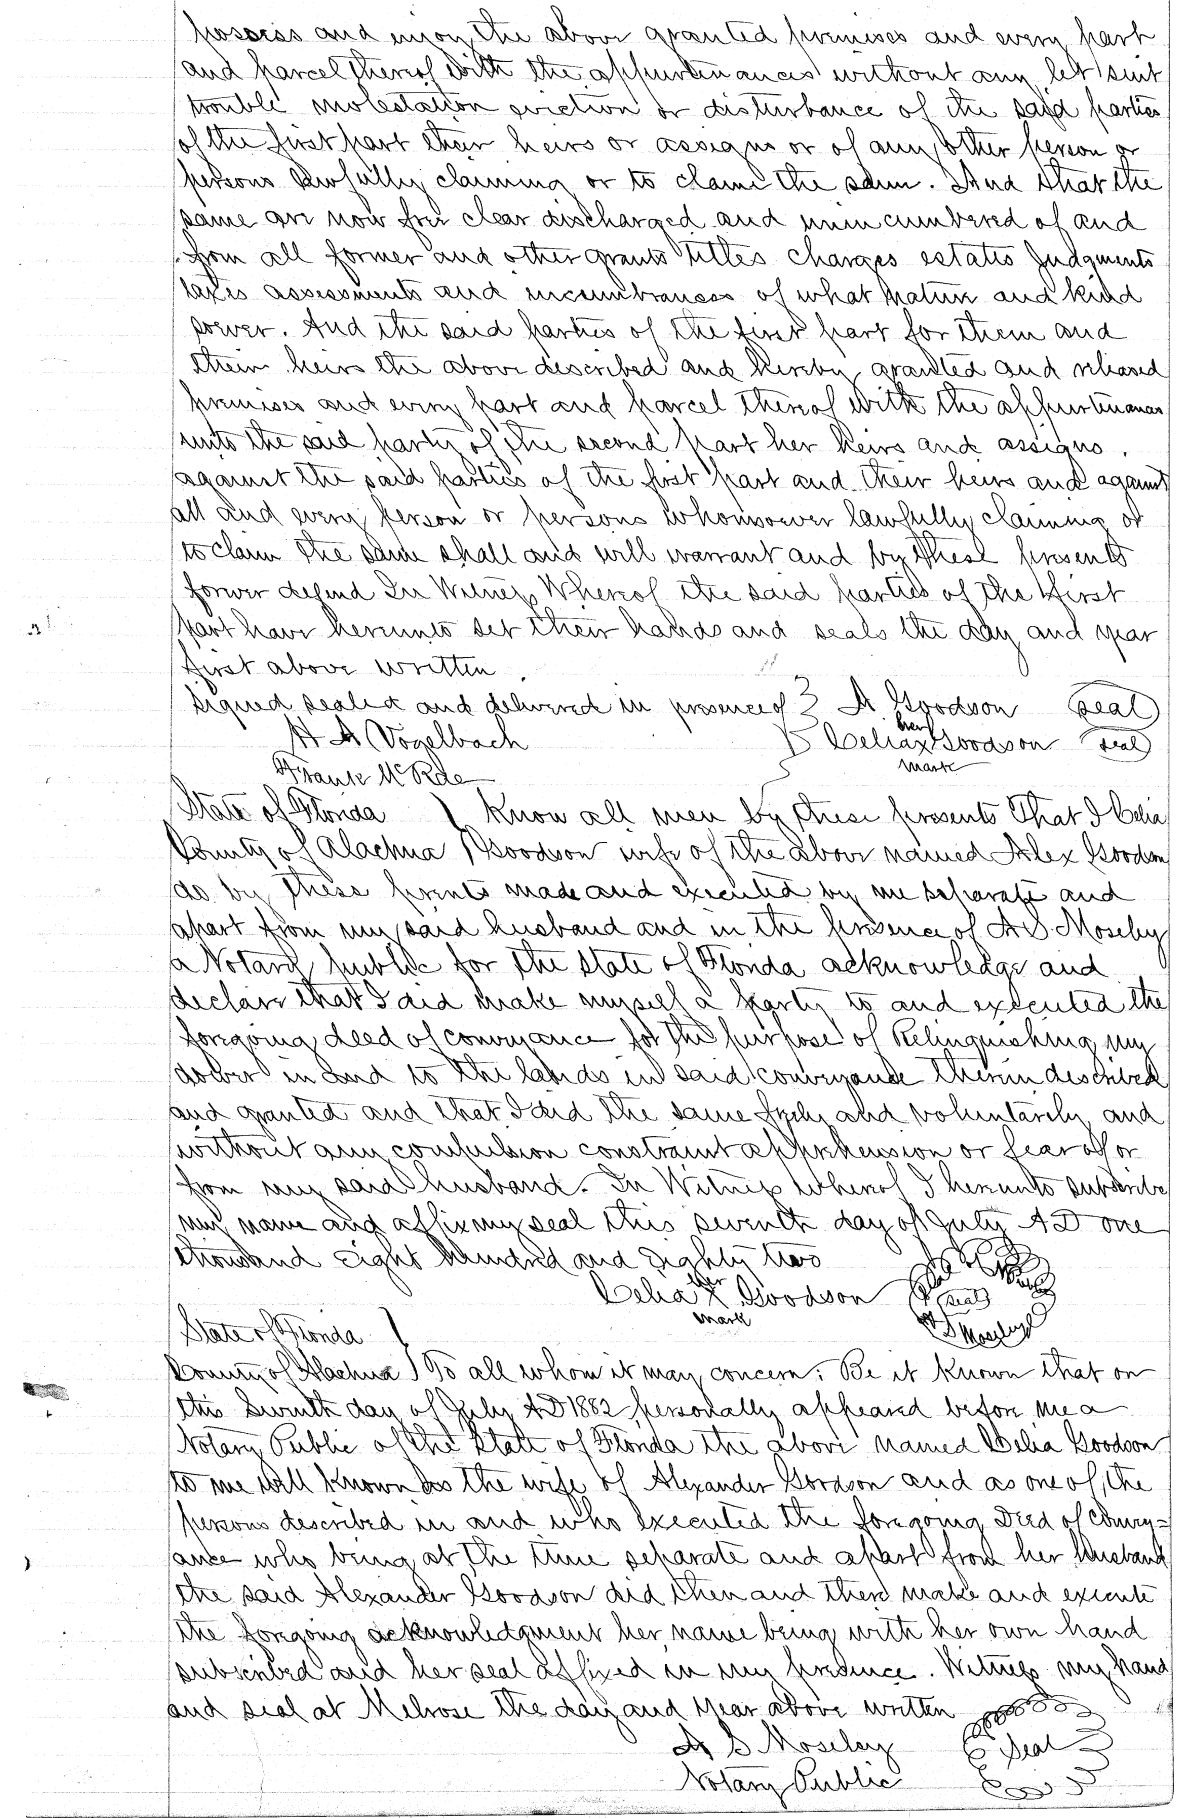 possess and enjoy the above granted premises and every part
and parcel thereof with the appurtenances without any let suit
trouble molestation eviction or disturbance of the said parties
of the first part their heirs or assigns or of any other person or
persons lawfully claiming or to claim the same. And that the
same are now free clear discharged and unincumbered of and
from all former and other grants titles charges estates Judgments
taxes assessments and incumbrances of what nature and kind
soever. And the said parties of the first part for them and
their heirs the above described and hereby granted and released
premises and every part and parcel thereof with the appurtenances
unto the said party of the second part her heirs and assigns.
against the said parties of the first part and their heirs and against
all and every person or persons whomsoever lawfully claiming or
to claim the same shall and will warrant and by these presents
forever defend In Witness Whereof the said parties of the first
part have hereunto set their hands and seals the day and year
first above written.
Signed sealed and delivered in presence of } A Goodson (seal)
H A Vogelbach } Celia her x mark Goodson (seal)
Frank McRae
State of Florida } Know all men by these presents That I Celia
County of Alachua } Goodson wife of the above named Alex Goodson
do by these prents made and executed by me separate and
apart from my said husband and in the presence of A S. Moseley
a Notary public for the State of Florida acknowledge and
declare that I did make myself a party to and executed the
foregoing deed of conveyance for the purpose of Relinquishing my
dower in and to the lands in said conveyance therein described
and granted and that I did the same freely and voluntarily and
without any compulsion constraint apprehension or fear of or
from my said husband. In Witness whereof I hereunto subscribe
my name and affix my seal this seventh day of July AD one
thousand eight hundred and Eighty two
Celia her x mark Goodson (seal)
A S Moseley
State of Florida }
County of Alachua } To all whom it may concern: Be it Known that on
this Seventh day of July AD 1882 personally appeared before me a
Notary Public of the State of Florida the above named Celia Goodson
to me well known as the wife of Alexander Goodson and as one of the
persons described in and who executed the foregoing Deed of Convey=
ance who being at the time separate and apart from her husband
the said Alexander Goodson did then and there make and execute
the foregoing acknowledgment her name being with her own hand
subscribed and her seal affixed in my presence. Witness my hand
and seal at Melrose the day and year above written
A S Moseley Seal
Notary Public